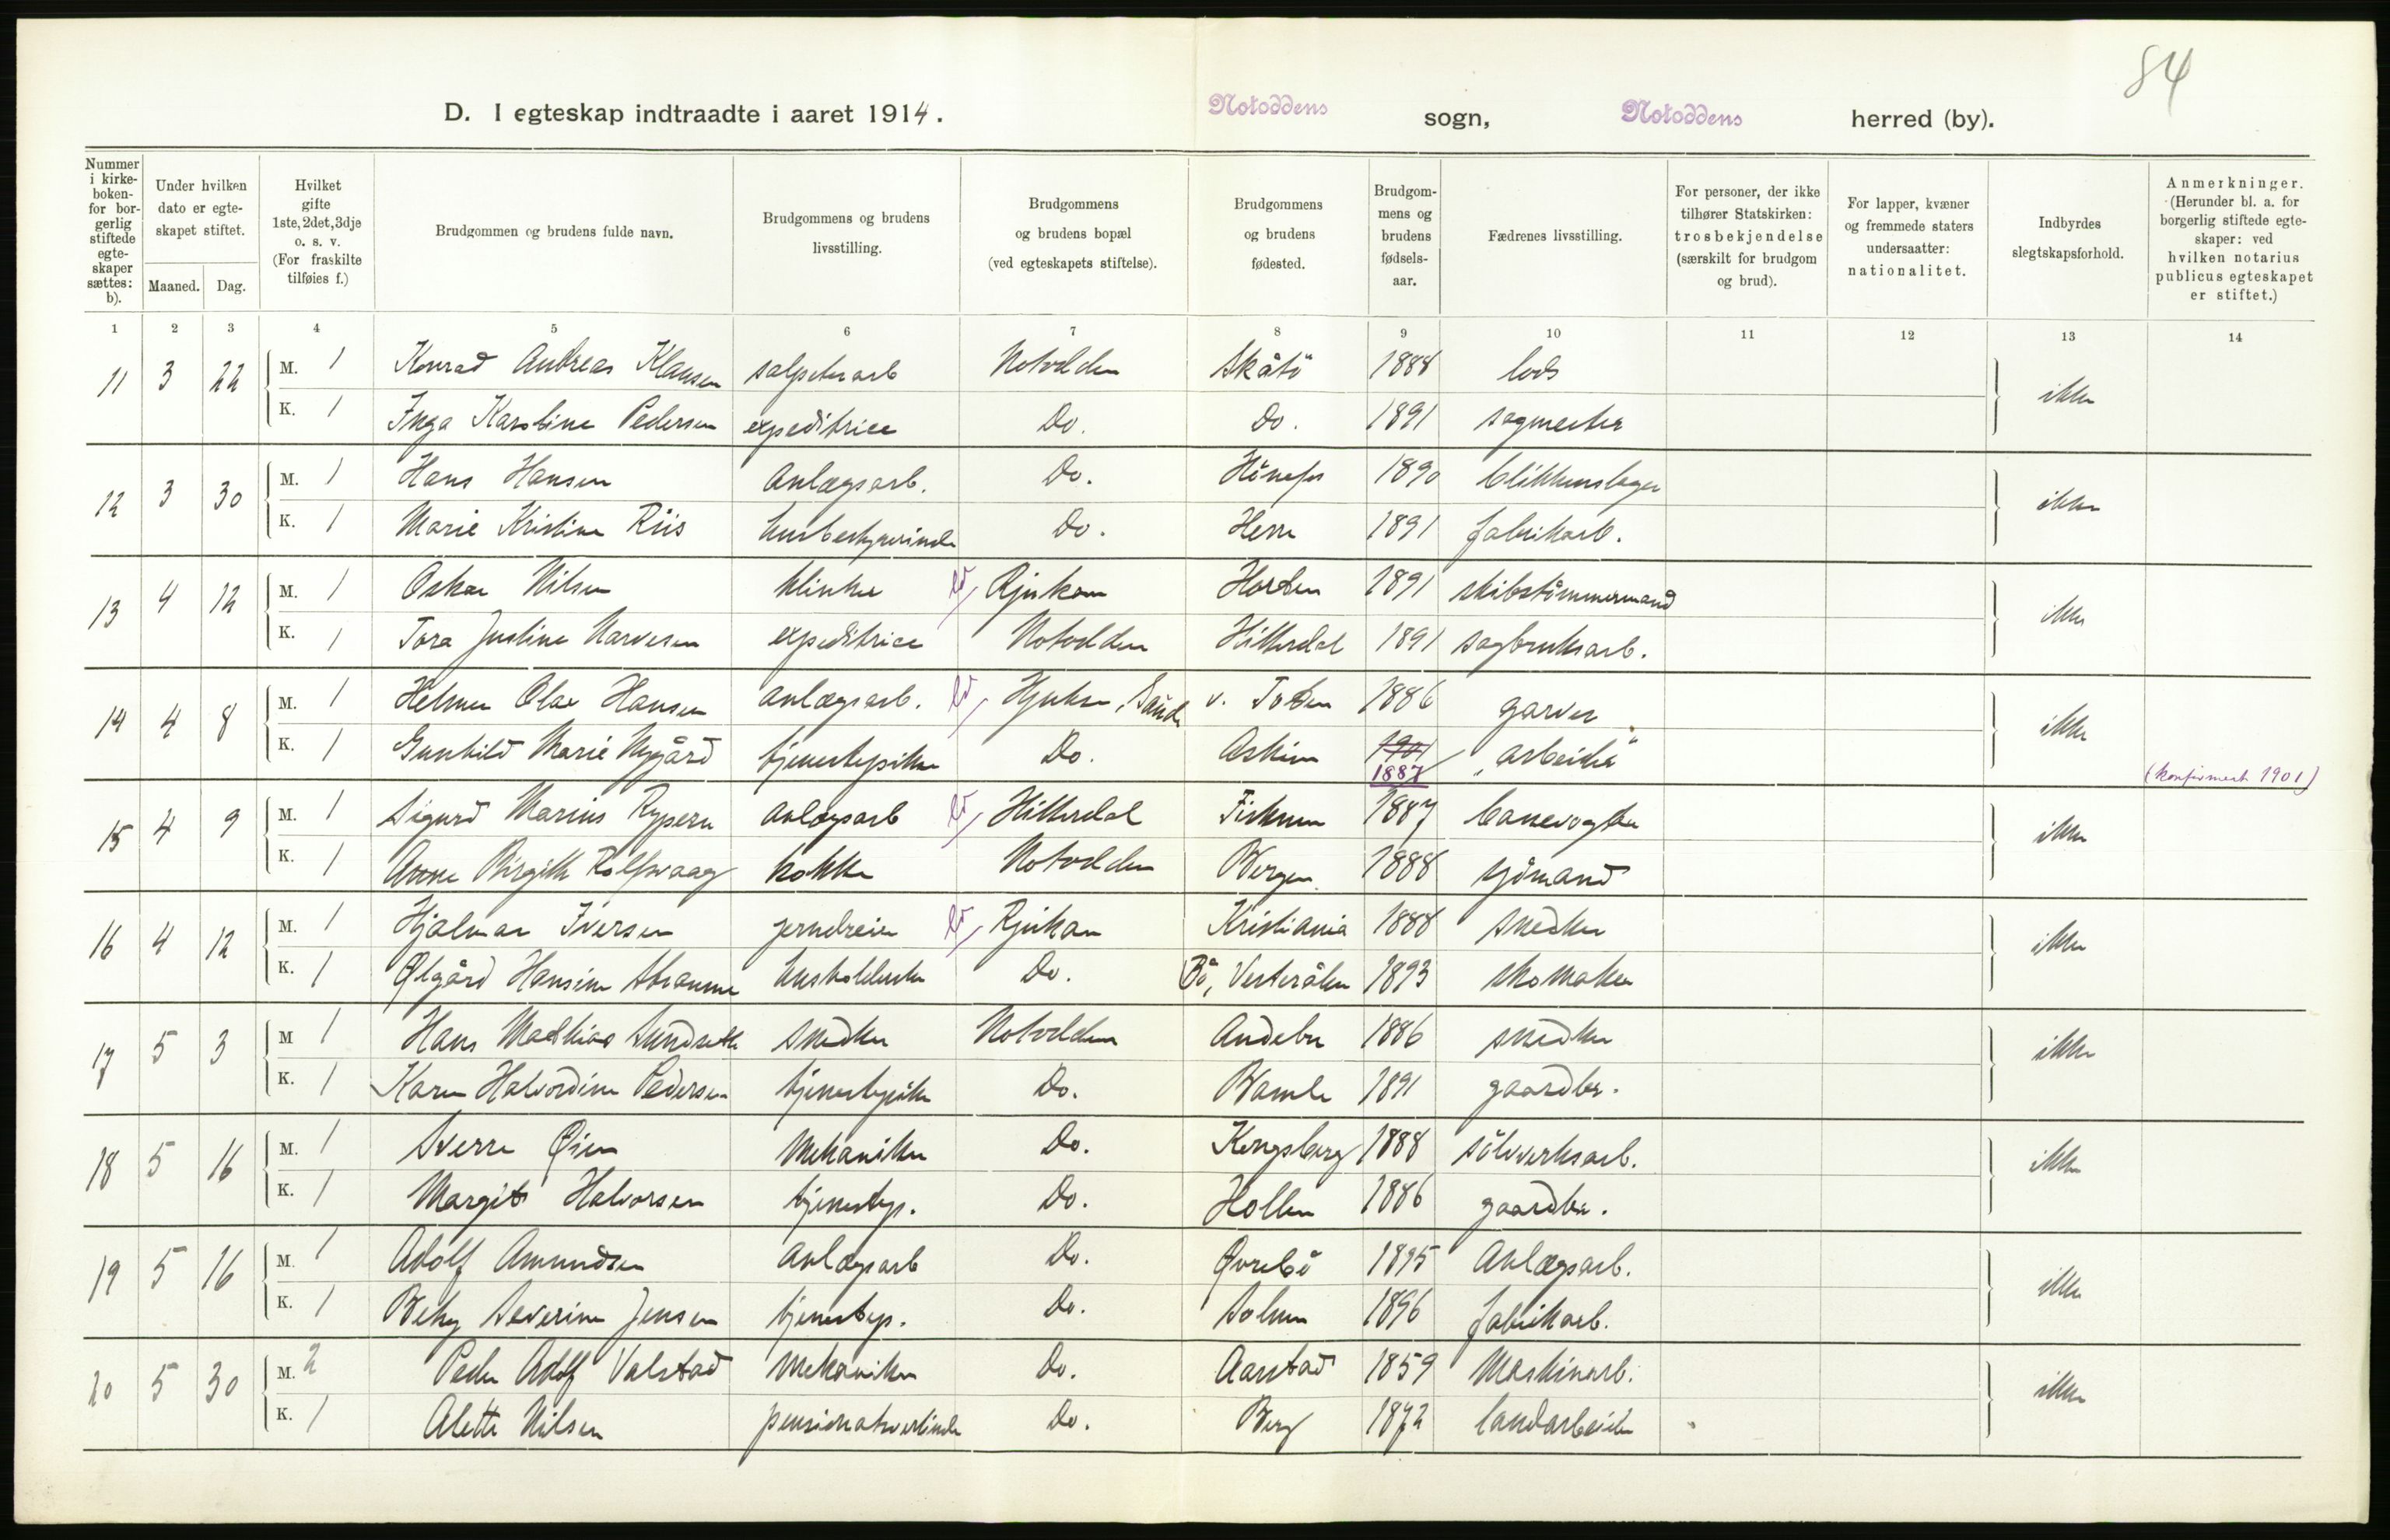 84
D. I egteskap indtraadte i aaret 1914. Notoddens sogn, Notoddens herred (by).
Nummer i kirkeboken- for borgerlig stiftede egteskaper sættes: b). Under hvilken dato er egteskapet stiftet. Maaned. Dag. Hvilket gifte 1ste, 2det, 3dje o. s. v. (For fraskilte tilføies f.) Brudgommen og brudens fulde navn. Brudgommens og brudens livsstilling. Brudgommens og brudens bopæl (ved egteskapets stiftelse). Brudgommens og brudens fødested. Brudgommens og brudens fødselsaar. Fædrenes livsstilling. For personer, der ikke tilhører Statskirken: trosbekjendelse (særskilt for brudgom og brud). For lapper, kvæner og fremmede staters undersaatter: nationalitet. Indbyrdes slegtskapsforhold. Anmerkninger. (Herunder bl. a. for borgerlig stiftede egteskaper: ved hvilken notarius publicus egteskapet er stiftet.)
1 2 3 4 5 6 7 8 9 10 11 12 13 14
11 3 22 M. 1 Konrad Andreas Klausen salpeterarb Notodden Skåtö 1888 lods ikke
K. 1 Inga Karoline Pedersen expeditrice Do. Do. 1891 sagmester
12 3 30 M. 1 Hans Hansen Anlægsarb. Do. Hönefos 1890 blikkenslager ikke
K. 1 Marie Kristine Riis husbestyrerinde Do. Herre 1891 fabrikarb.
13 4 12 M. 1 Oskar Nilsen klinker Rjukan Horten 1891 skibstömmermand ikke
K. 1 Tora Justine Narvesen expeditrice Notodden Hitterdal 1891 sagbruksarb.
14 4 8 M. 1 Helmer Olav Hansen anlægsarb. Hjuksa, Saude v. Toten 1886 garver ikke
K. 1 Gunhild Marie Nygård tjenestepike Do. Askim 1901 1887 "arbeider" (konfirmert 1901)
15 4 9 M. 1 Sigurd Marius Rypern anlægsarb Hitterdal Fiskum 1887 banevogter ikke
K. 1 Anne Birgitte Rolfsvaag kokke Notodden Bergen 1888 sjömand
16 4 12 M. 1 Hjalmar Iversen jerndreier Rjukan Kristiania 1888 snedker ikke
K. 1 Ølgård Hansine husholderske Do. Bö, Vesterålen 1893 skomaker
17 5 3 M 1 Hans Mathias Sundseth snedker Notodden Andebu 1886 snedker ikke
K. 1 Karen Halvordine Pedersen tjenestepike Do. Bamle 1891 gaardbr.
18 5 16 M. 1 Sverre Øien Mekaniker Do. Kongsberg 1888 sölvverksarb. ikke
K. 1 Margit Halvorsen tjenestep. Do. Hollen 1886 gaardbr.
19 5 16 M. 1 Adolf Amundsen Anlægsarb Do. Øvrebö 1895 Anlægsarb. ikke
K. 1 Betzy Severine Jensen tjenestep. Do. Solum 1896 fabrikarb.
20 5 30 M. 2 Peder Adolf Valstad Mekaniker Do. Aarstad 1859 Maskinarb. ikke
K. 1 Alette Nilsen pensionatværtinde Do. Berg 1872 landarbeider